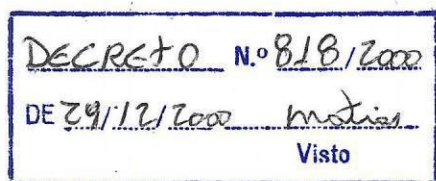 DECRETO N.º 818/2000
DE 29/12/2000 matias
Visto